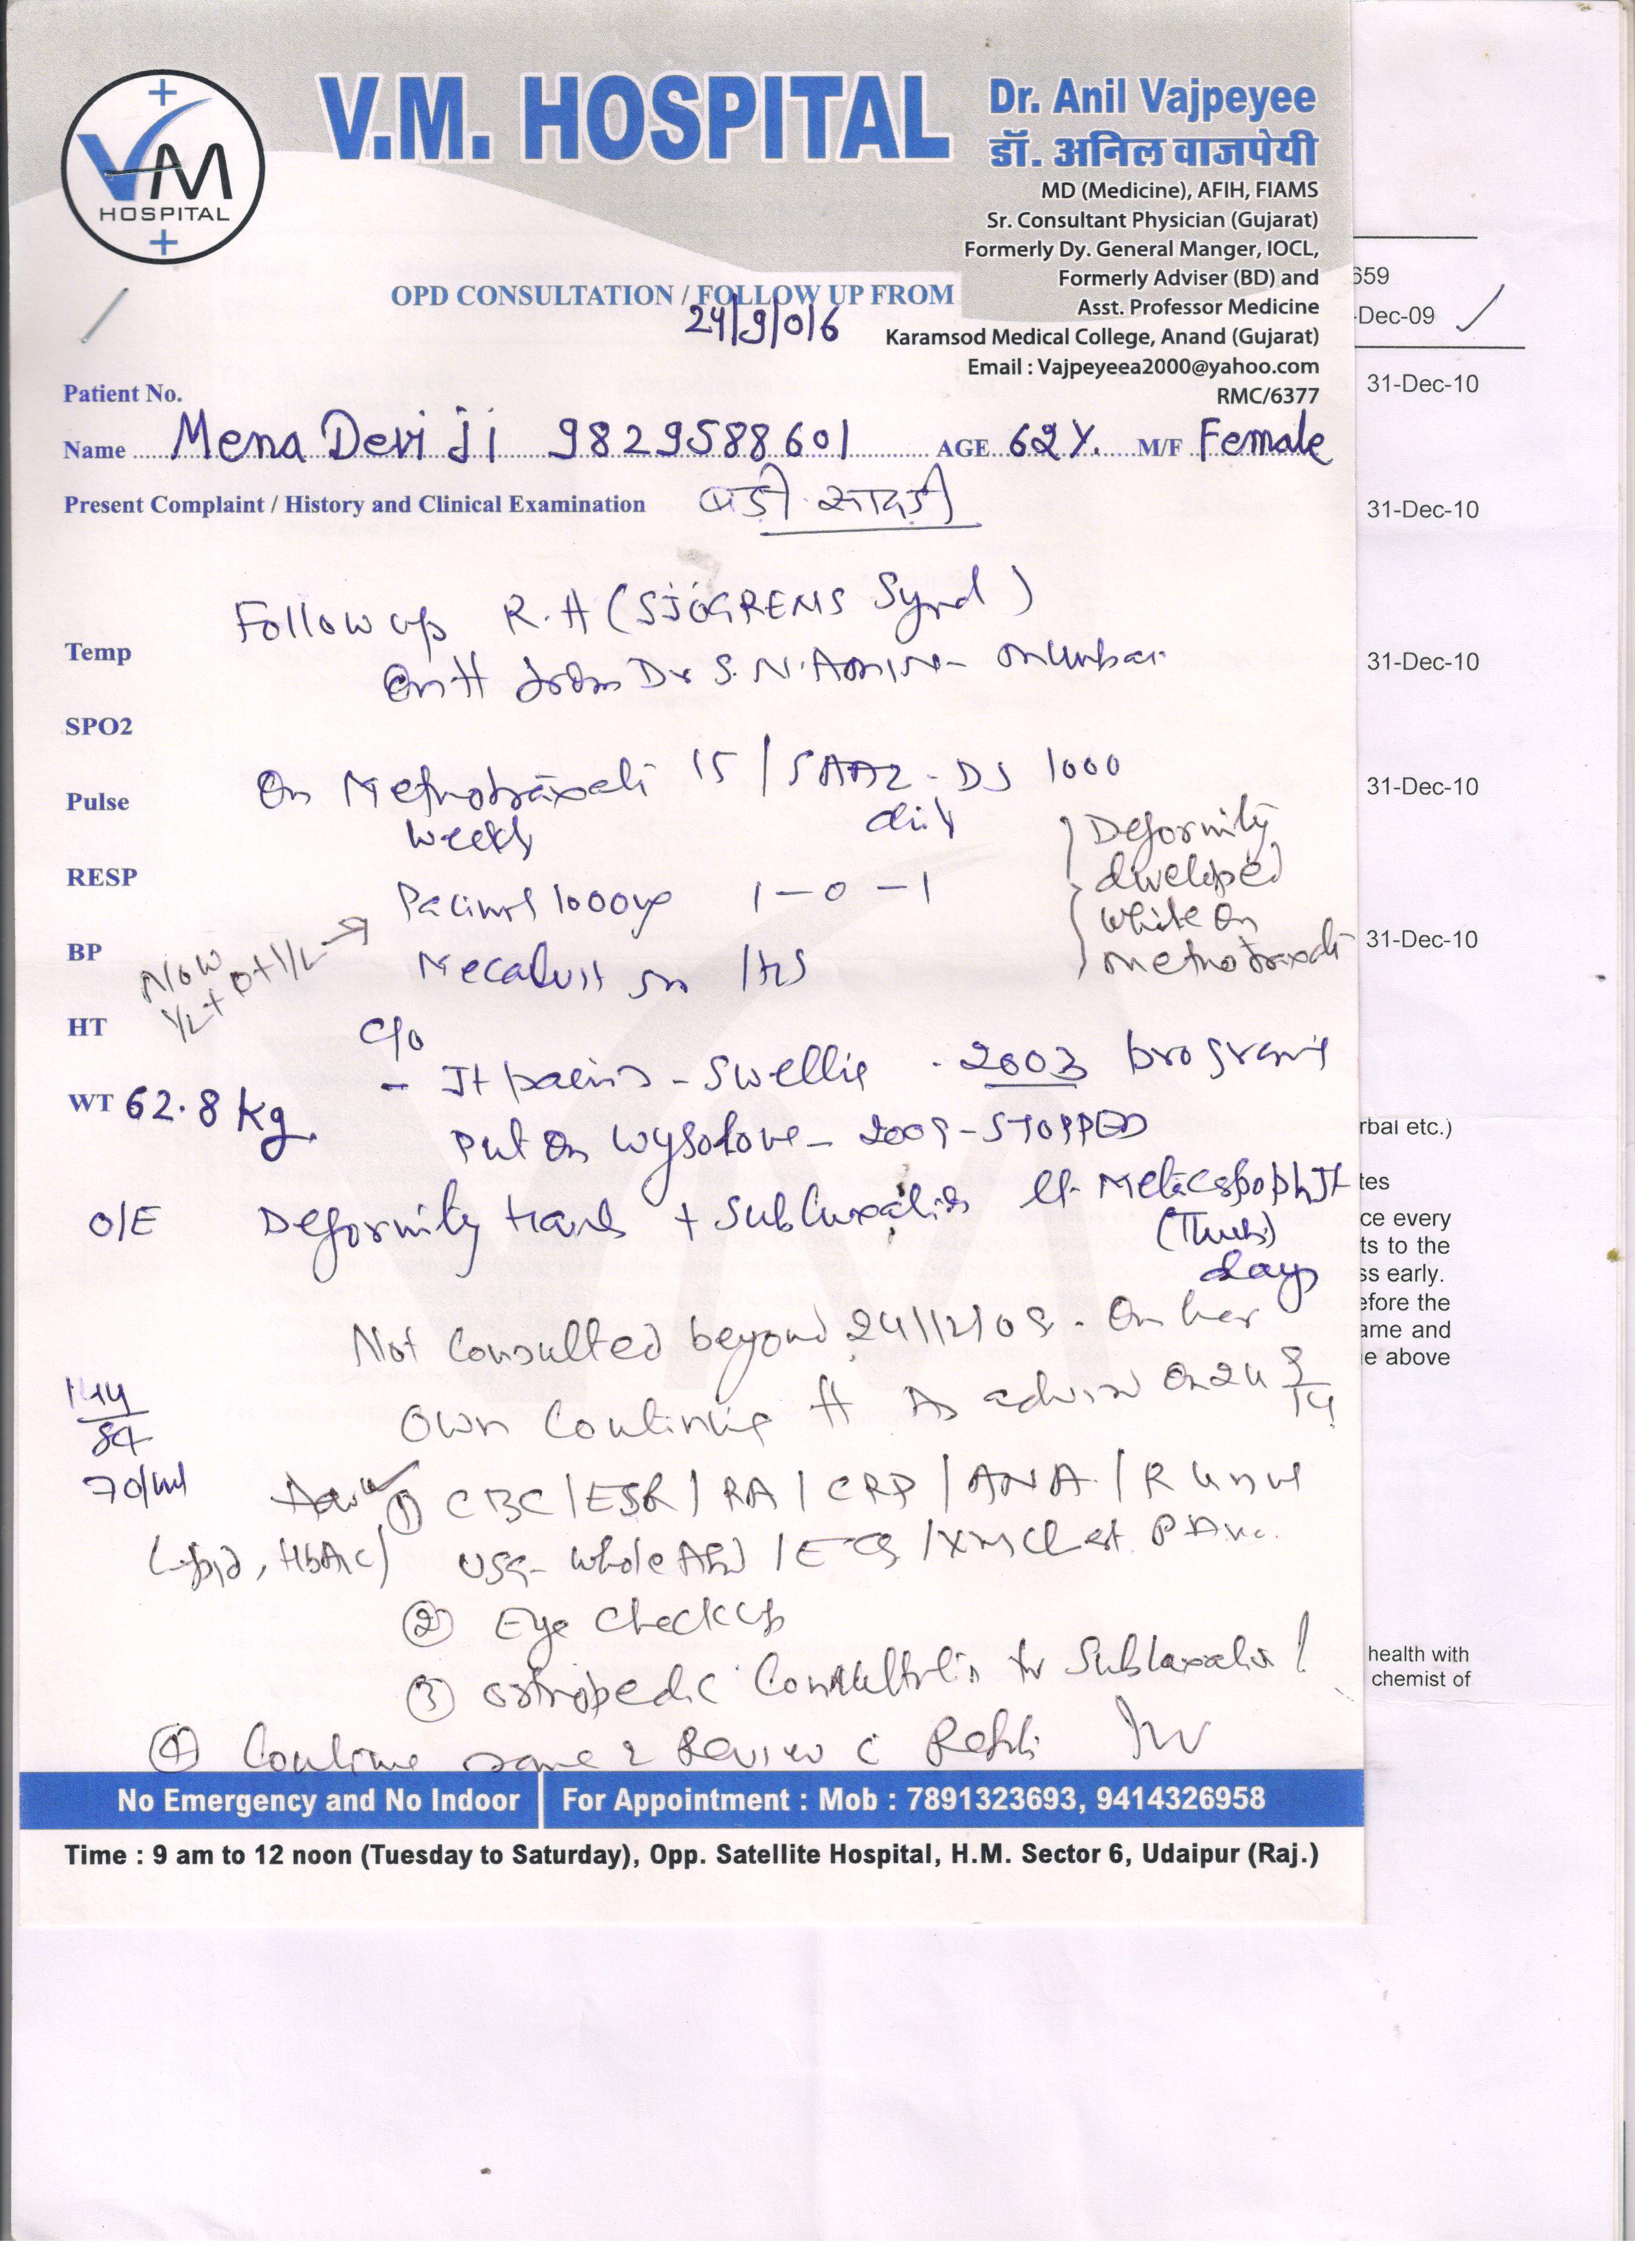 V.M. HOSPITAL
VM
HOSPITAL
Dr. Anil Vajpeyee
डॉ. अनिल वाजपेयी
MD (Medicine), AFIH, FIAMS
Sr. Consultant Physician (Gujarat)
Formerly Dy. General Manger, IOCL,
Formerly Adviser (BD) and
Asst. Professor Medicine
Karamsod Medical College, Anand (Gujarat)
Email : Vajpeyeea2000@yahoo.com
RMC/6377
OPD CONSULTATION / FOLLOW UP FROM
24/9/016
659
-Dec-09
31-Dec-10
Patient No.
Name Mena Devi ji 9829588601 AGE 62Y. M/F Female
Present Complaint / History and Clinical Examination
31-Dec-10
Follow up R.A (SJÖGRENS Synd)
Temp
from Dr S. N. Mumbai
31-Dec-10
SPO2
On Methotraxate 15 / SAAZ-DS 1000
Pulse
31-Dec-10
weekly daily
Deformity
developed
while on
methotraxate
RESP
1000 1-0-1
BP
31-Dec-10
Now
1/2 + 0 + 1/2
HT
C/o
- Jt pains - Swelling . 2003 progressive
WT 62.8 kg
Put on Wysolone - 2009 - STOPPED
rbal etc.)
O/E Deformity hand + Subluxation Lt. Metacarpoph Jt
(Thumb)
tes
ce every
ts to the
ss early.
efore the
ame and
e above
days
Not Consulted beyond 24/12/09. On her
own continuing tt As advised on 24 9/14
144/84
70/mt
Advise ① CBC/ESR/RA/CRP/ANA/R Urine
Lipid, HbA1c/ USG- Whole Abd /ECG/Xray Chest PA
② Eye Checkup
③ Orthopedic Consultation for Subluxation!
health with
chemist of
④ Continue same & Review c Reports
No Emergency and No Indoor
For Appointment : Mob : 7891323693, 9414326958
Time : 9 am to 12 noon (Tuesday to Saturday), Opp. Satellite Hospital, H.M. Sector 6, Udaipur (Raj.)